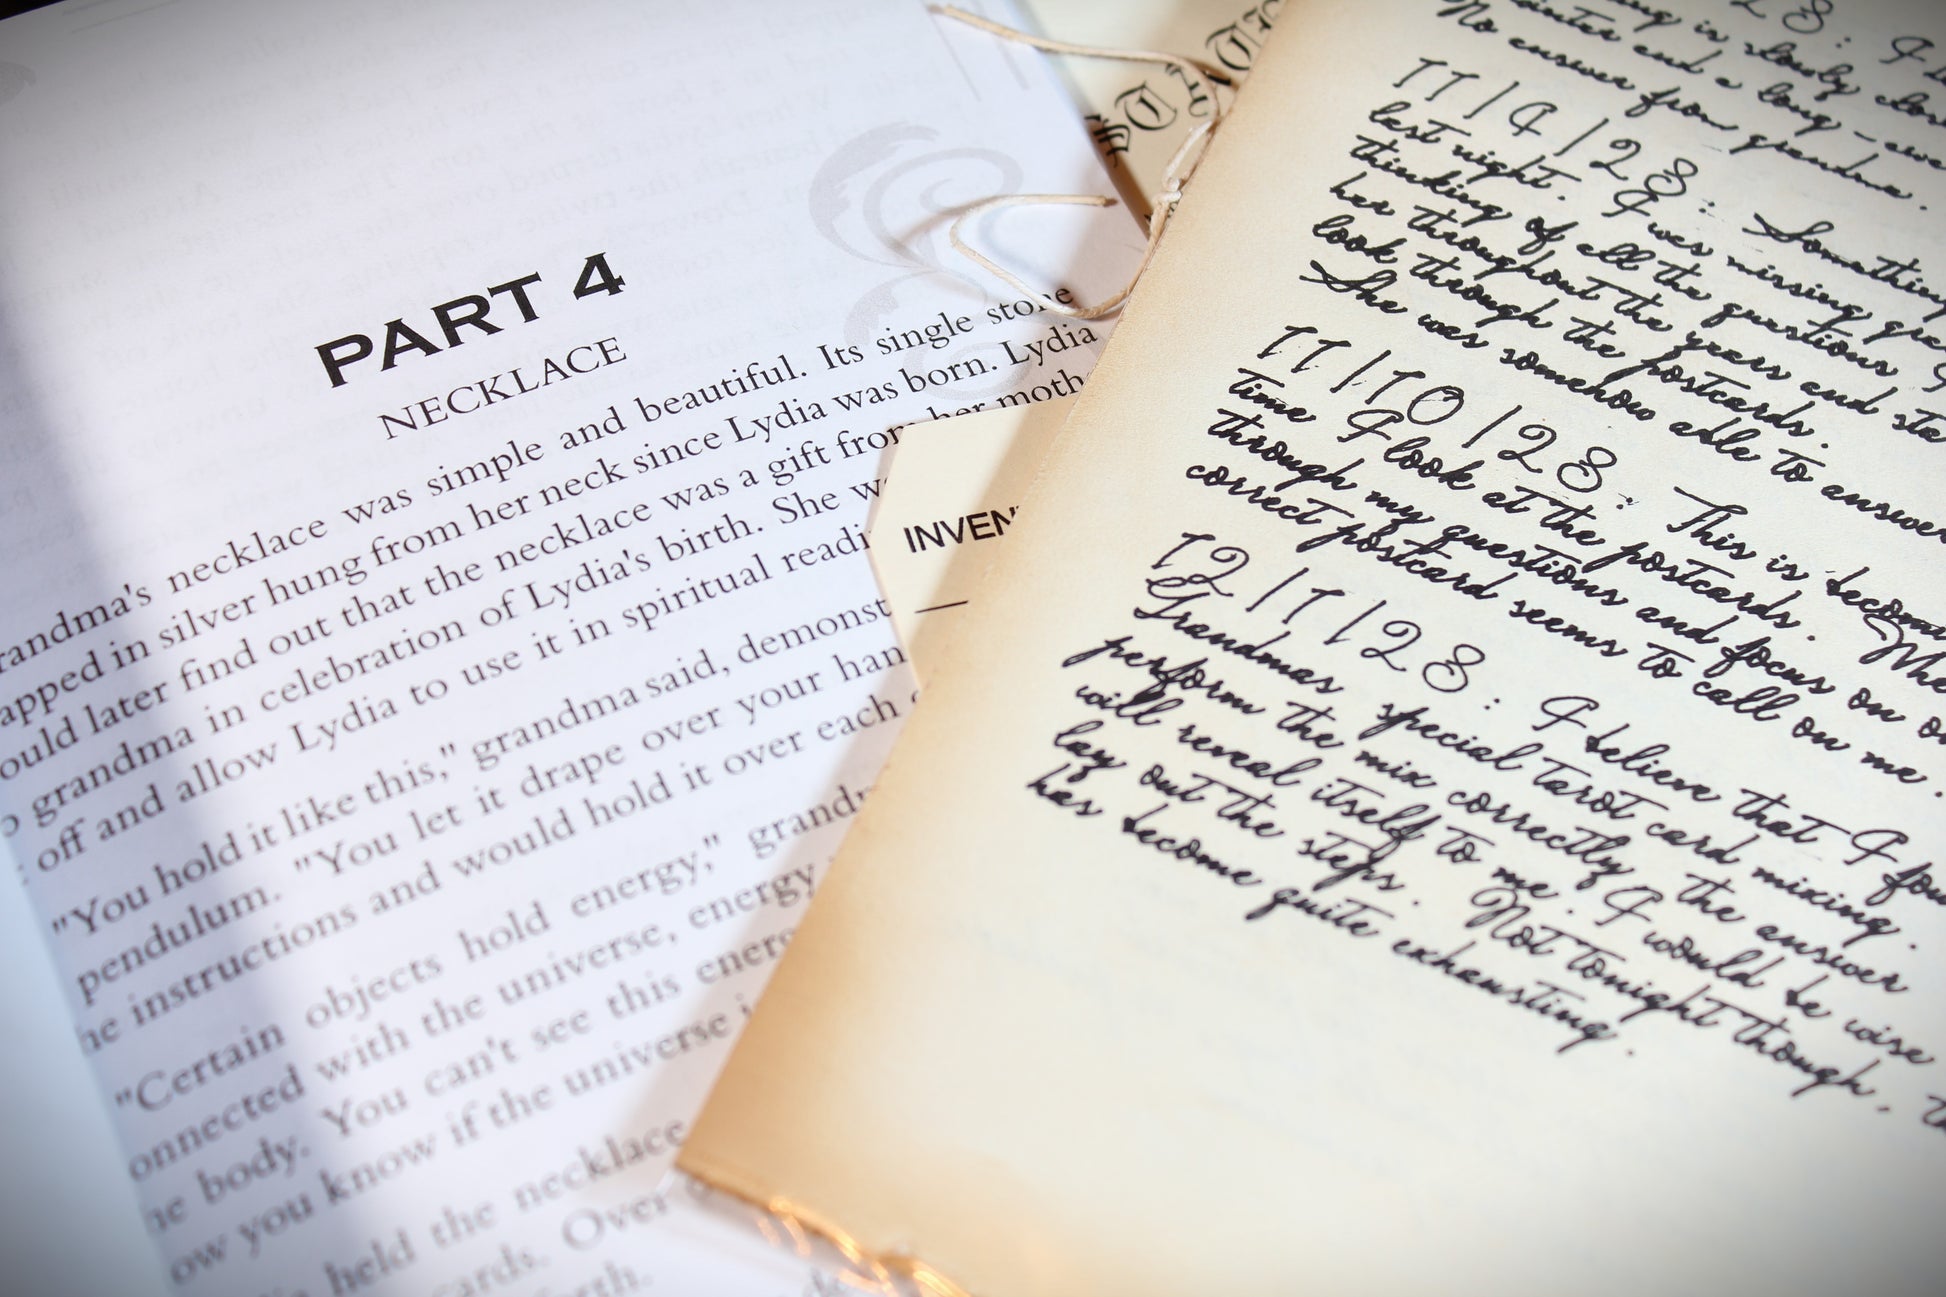 PART 4
NECKLACE
randma's necklace was simple and beautiful. Its single stone
apped in silver hung from her neck since Lydia was born. Lydia
ould later find out that the necklace was a gift from her moth
o grandma in celebration of Lydia's birth. She w
off and allow Lydia to use it in spiritual readi
"You hold it like this," grandma said, demonst
pendulum. "You let it drape over your han
he instructions and would hold it over each
"Certain objects hold energy," grandm
onnected with the universe, energy
he body. You can't see this energ
ow you know if the universe i
held the necklace
cards. Over
rth.
INVEN
No answer from grandma.
11/4/23: Something
last night. I was missing gra
thinking of all the questions I
her throughout the years and sta
look through the postcards.
She was somehow able to answer
11/10/23: This is becomi
time I look at the postcards. Whe
through my questions and focus on on
correct postcard seems to call on me.
12/1/23: I believe that I fou
Grandmas special tarot card mixing.
perform the mix correctly, the answer
will reveal itself to me. I would be wise
lay out the steps. Not tonight though.
has become quite exhausting.